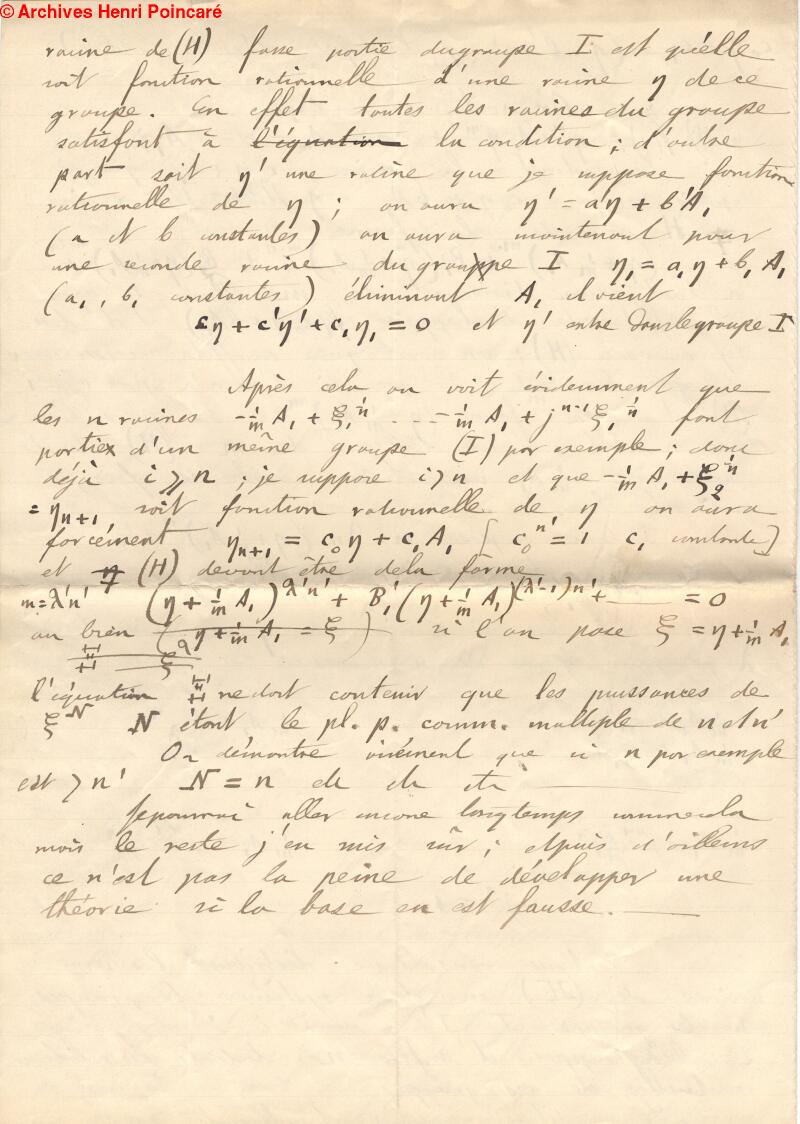 © Archives Henri Poincaré
racine de (H) fasse partie du groupe I est qu'elle
soit fonction rationnelle d'une racine η de ce
groupe. En effet toutes les racines du groupe
satisfont à l'équation la condition ; d'autre
part soit η' une racine que je suppose fonction
rationnelle de η ; on aura η' = a'η + b'A₁
(a et b constantes) on aura maintenant pour
une seconde racine du groupe I η₁ = a₁η + b₁A₁
(a₁, b₁ constantes) éliminant A₁ il vient
cη + c'η' + c₁η₁ = 0 et η' entre dans le groupe I
Après cela on voit évidemment que
les n racines -1/m A₁ + ξ₁^1/n ... -1/m A₁ + j^n-1 ξ₁^1/n font
partie d'un même groupe (I) par exemple ; donc
déjà i ⩾ n ; je suppose i > n et que -1/m A₁ + ξ₂^1/n
= ηn+1 soit fonction rationnelle de η on aura
forcément ηn+1 = c₀η + c₁A₁ [c₀^n' = 1 c₁ constante]
et η (H) devant être de la forme
m = λ'n' (η + 1/m A₁)^λ'n' + B₁'(η + 1/m A₁)^(λ'-1)n' + ___ = 0
ou bien (η + 1/m A₁ = ξ) si l'on pose ξ = η + 1/m A₁
l'équation Ξ ne doit contenir que les puissances de
ξ^N N étant le pl. p. comm. multiple de n et n'
On démontre aisément que si n par exemple
est > n' N = n etc etc etc
Je pourrai aller encore longtemps comme cela
mais le reste j'en suis sûr ; et puis d'ailleurs
ce n'est pas la peine de développer une
théorie si la base en est fausse. ___